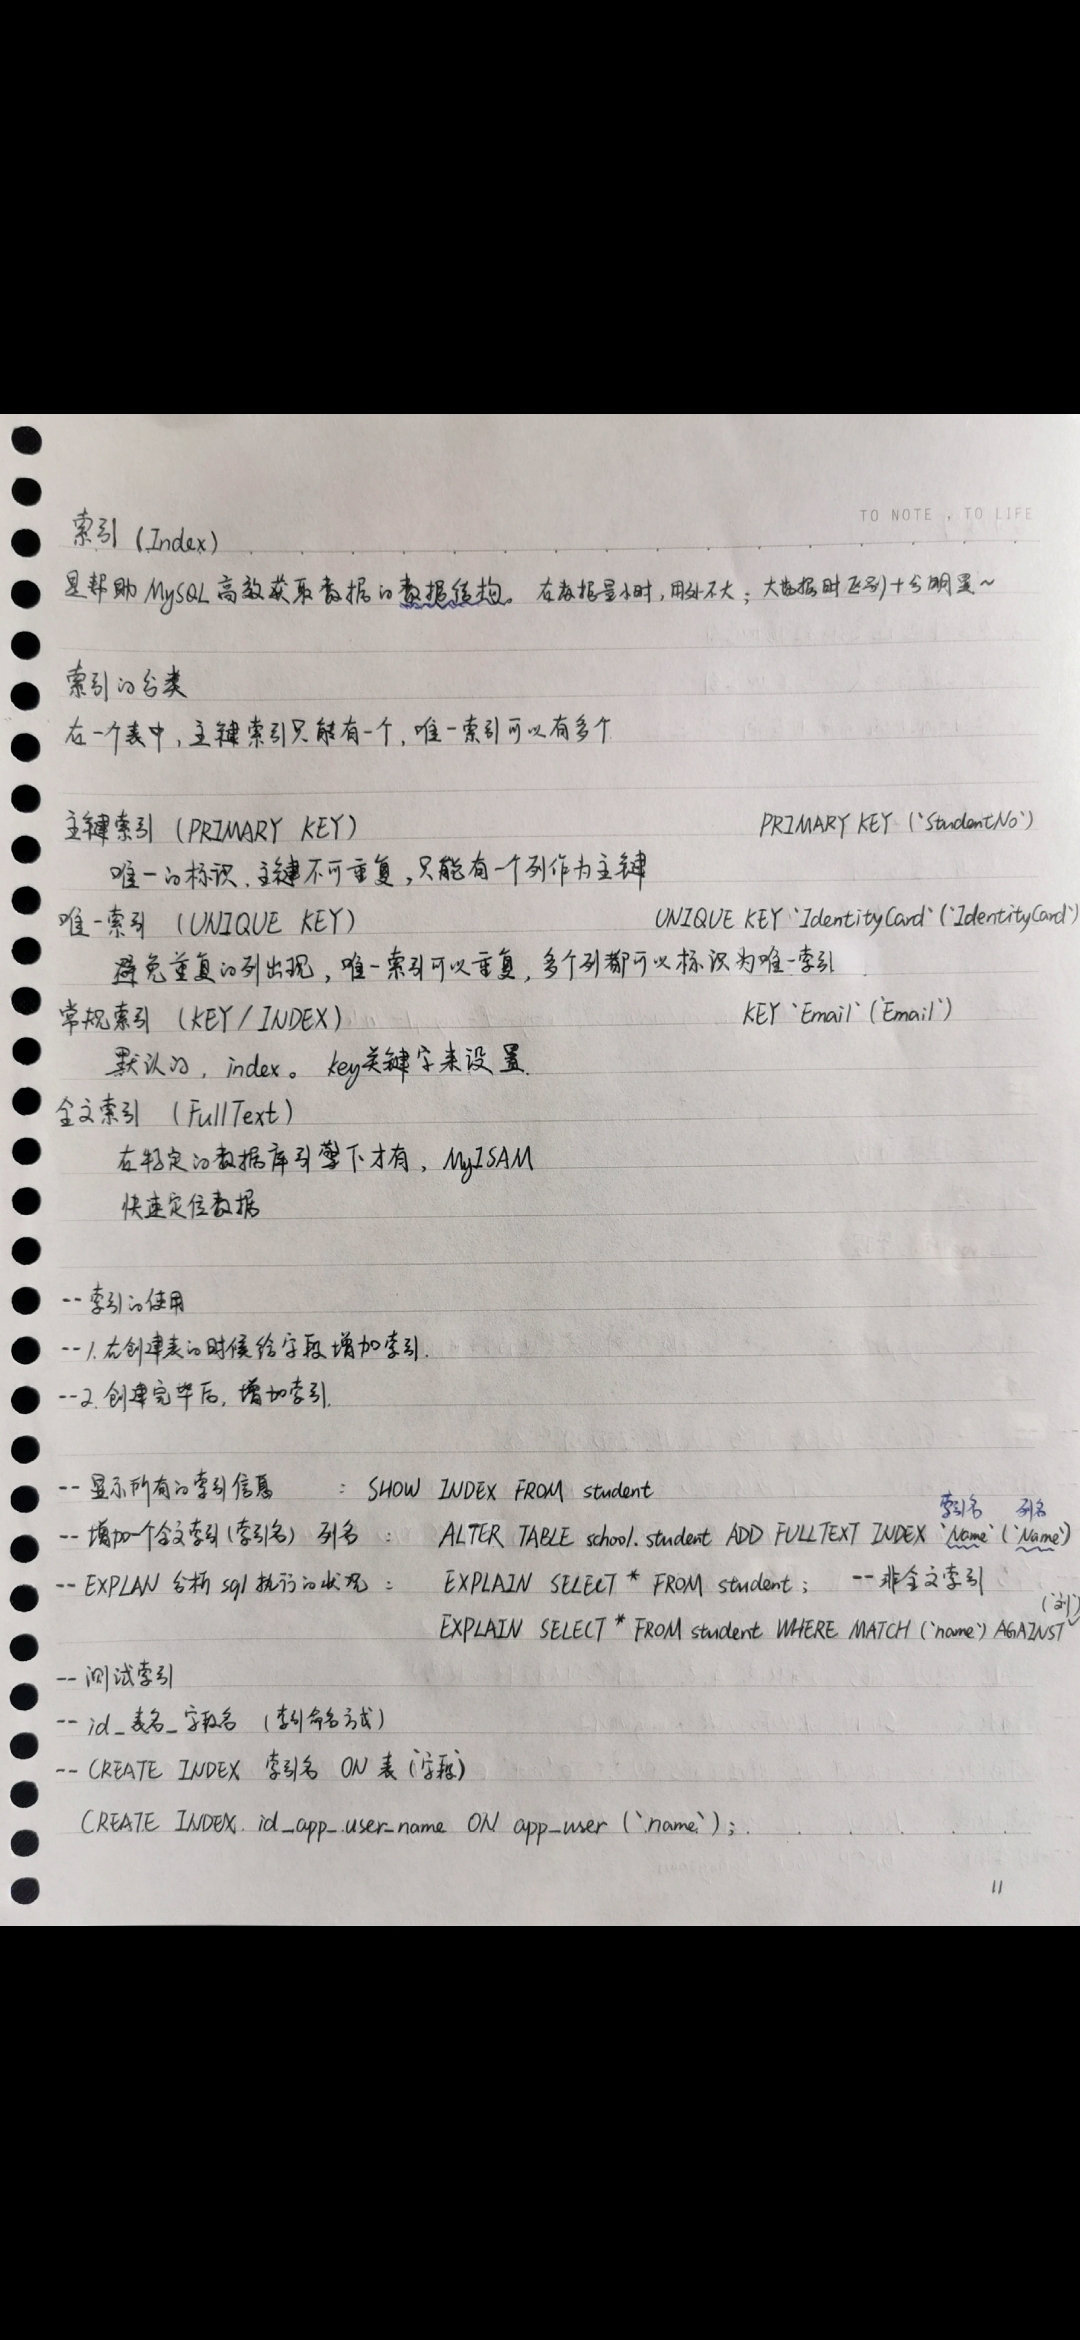 TO NOTE , TO LIFE
索引 (Index)
是帮助 MySQL 高效获取数据的数据结构。 在数据量小时，用处不大；大数据时区别十分明显~
索引的分类
在一个表中，主键索引只能有一个，唯一索引可以有多个
主键索引 (PRIMARY KEY) PRIMARY KEY (`StudentNo`)
唯一的标识、主键不可重复，只能有一个列作为主键
唯一索引 (UNIQUE KEY) UNIQUE KEY `IdentityCard` (`IdentityCard`)
避免重复的列出现，唯一索引可以重复，多个列都可以标识为唯一索引
常规索引 (KEY / INDEX) KEY `Email` (`Email`)
默认的，index。 key关键字来设置.
全文索引 (FullText)
在特定的数据库引擎下才有，MyISAM
快速定位数据
-- 索引的使用
-- 1. 在创建表的时候给字段增加索引.
-- 2. 创建完毕后，增加索引.
-- 显示所有的索引信息 : SHOW INDEX FROM student
索引名 列名
-- 增加一个全文索引(索引名) 列名 : ALTER TABLE school.student ADD FULLTEXT INDEX `Name` (`Name`)
-- EXPLAN 分析 sql 执行的状况 : EXPLAIN SELECT * FROM student; -- 非全文索引
EXPLAIN SELECT * FROM student WHERE MATCH (`name`) AGAINST (`刘`)
-- 测试索引
-- id_表名_字段名 (索引命名方式)
-- CREATE INDEX 索引名 ON 表 (`字段`)
CREATE INDEX id_app_user_name ON app_user (`name`);
11